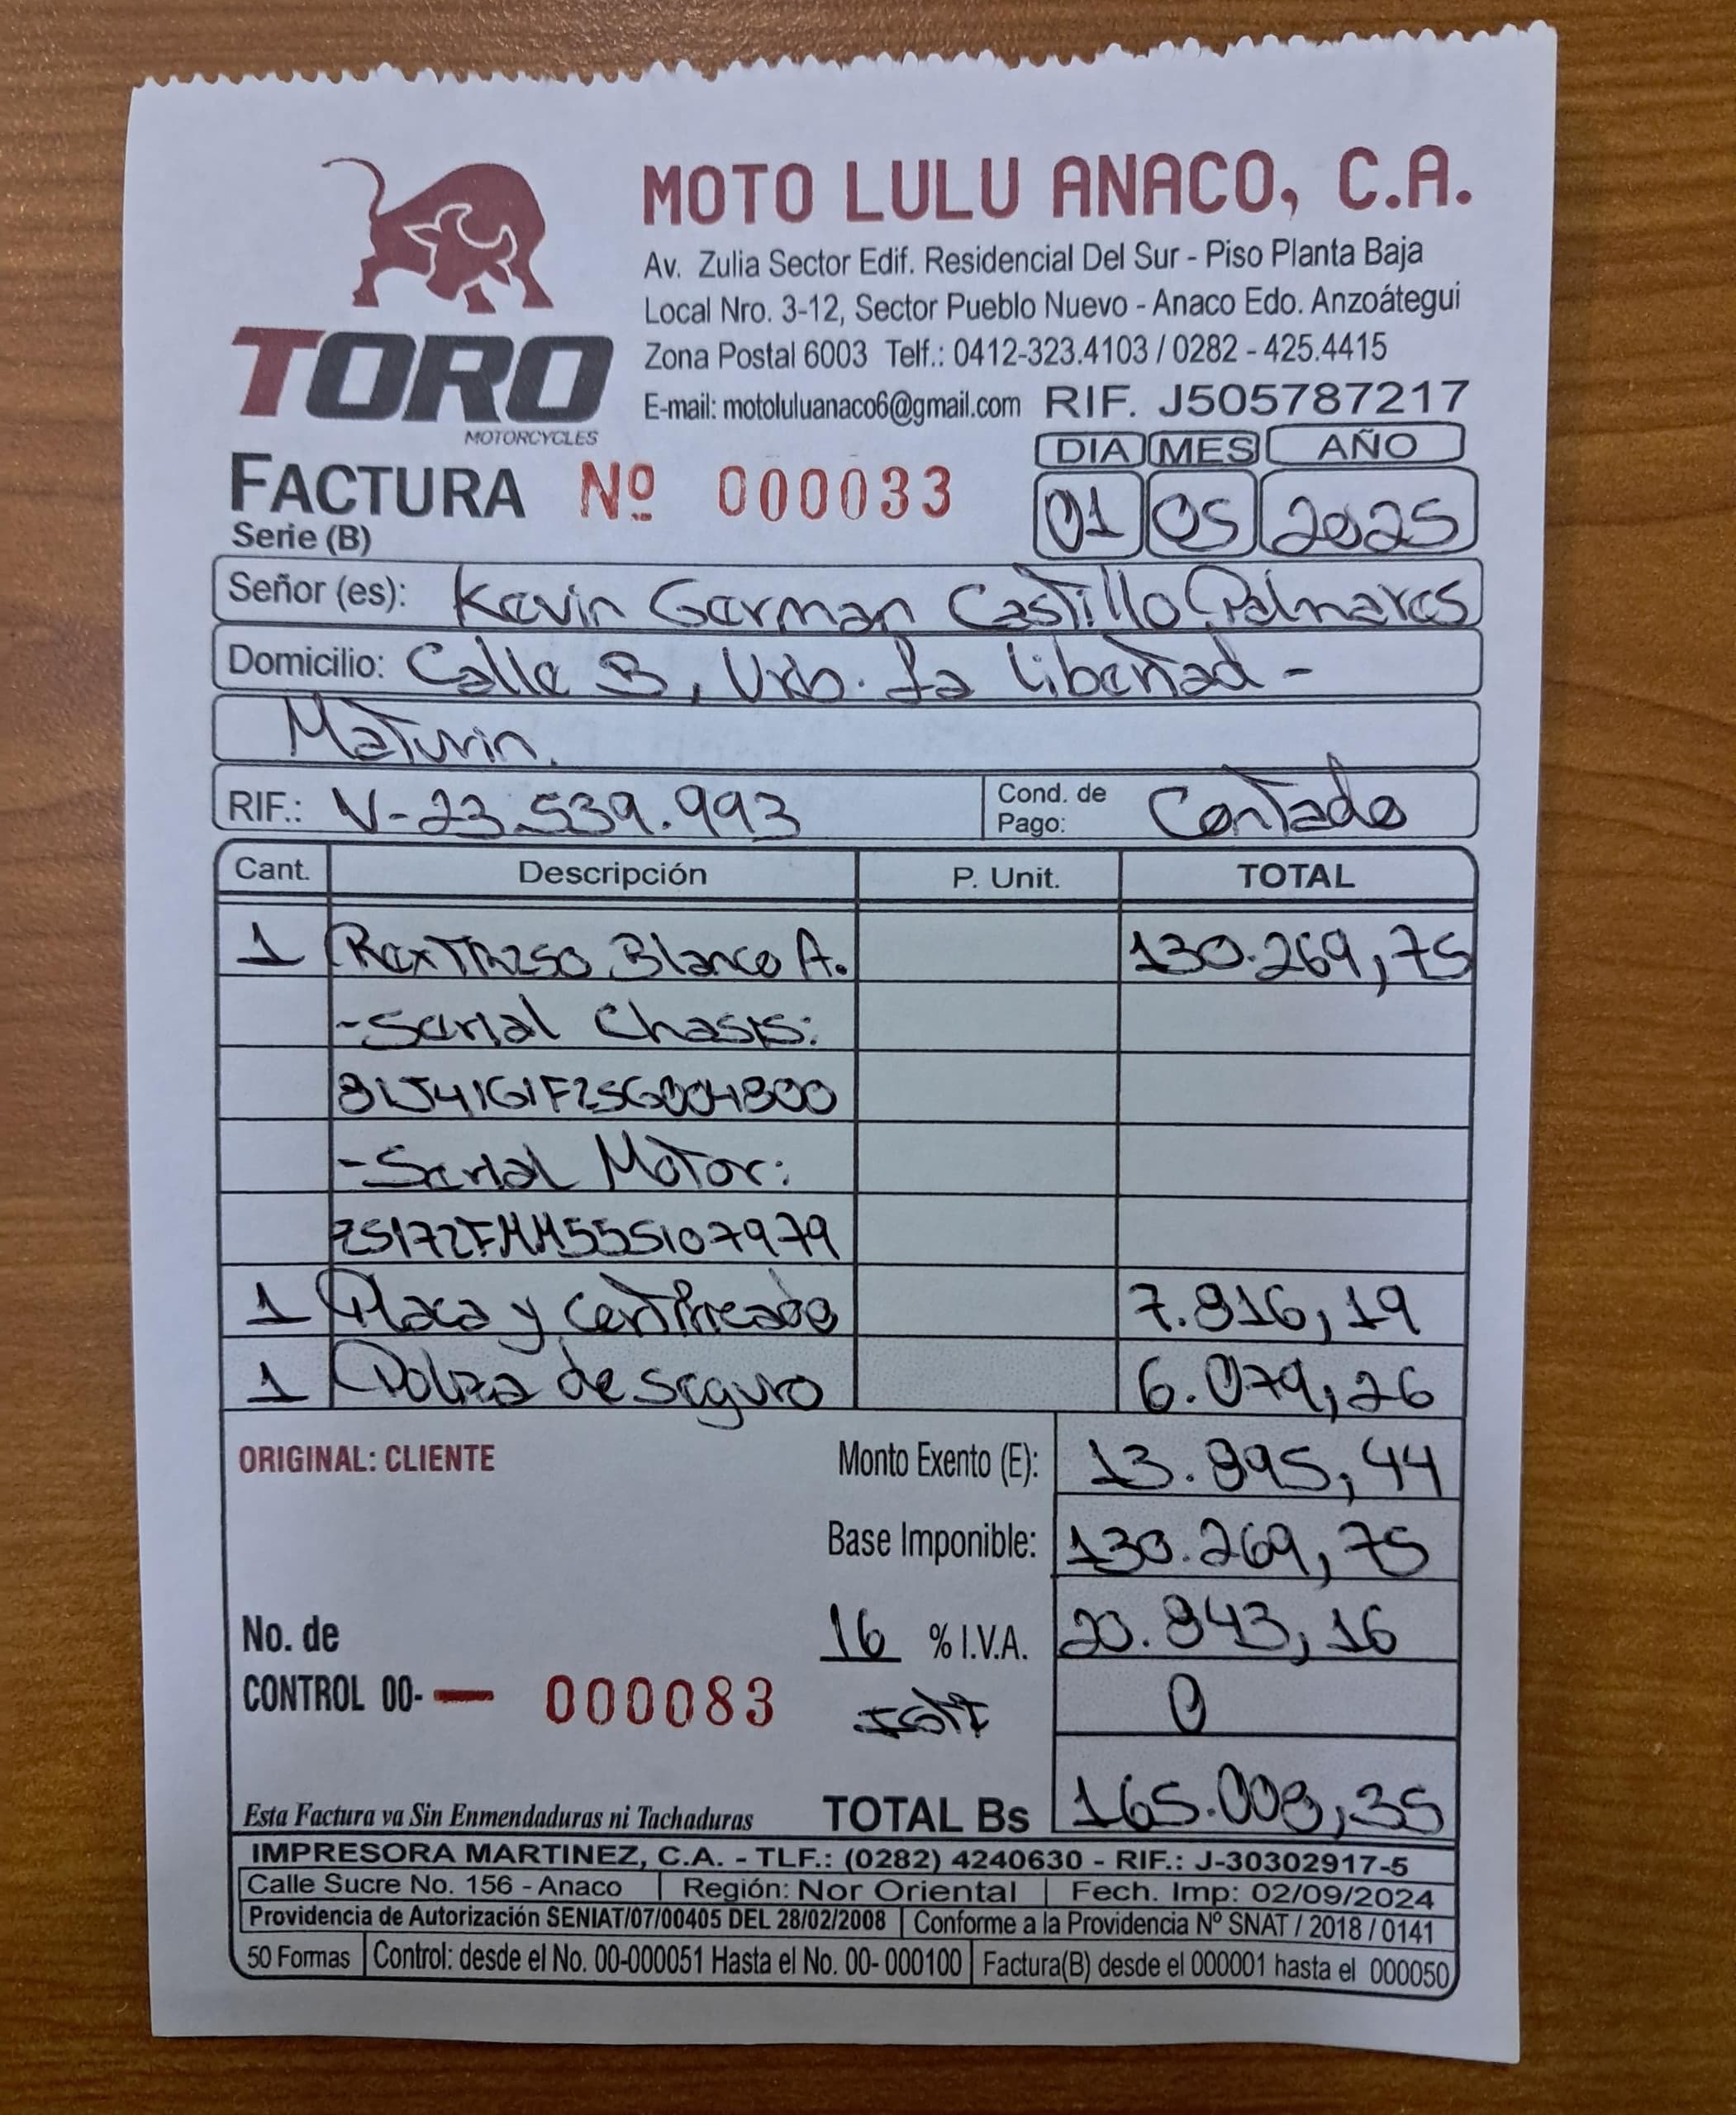 MOTO LULU ANACO, C.A.
Av. Zulia Sector Edif. Residencial Del Sur - Piso Planta Baja
Local Nro. 3-12, Sector Pueblo Nuevo - Anaco Edo. Anzoátegui
Zona Postal 6003 Telf.: 0412-323.4103 / 0282 - 425.4415
E-mail: motoluluanaco6@gmail.com RIF. J505787217
TORO
MOTORCYCLES
DIA MES AÑO
FACTURA Nº 000033
01 05 2025
Serie (B)
Señor (es): Kevin German Castillo Palmares
Domicilio: Calle 3, Urb. La Libertad -
Maturin.
RIF.: V-23.539.993 Cond. de Pago: Contado
Cant. Descripción P. Unit. TOTAL
1 RexTR250 Blanco A. 130.269,75
-Serial Chasis:
-Serial Motor:
ZS172FMM55S107979
1 Placa y Certificado 7.816,19
1 Poliza de seguro 6.079,26
ORIGINAL: CLIENTE
Monto Exento (E): 13.895,44
Base Imponible: 130.269,75
16 % I.V.A. 20.843,16
0
No. de
CONTROL 00- — 000083
Esta Factura va Sin Enmendaduras ni Tachaduras
TOTAL Bs 165.008,35
IMPRESORA MARTINEZ, C.A. - TLF.: (0282) 4240630 - RIF.: J-30302917-5
Calle Sucre No. 156 - Anaco Región: Nor Oriental Fech. Imp: 02/09/2024
Providencia de Autorización SENIAT/07/00405 DEL 28/02/2008 Conforme a la Providencia Nº SNAT / 2018 / 0141
50 Formas Control: desde el No. 00-000051 Hasta el No. 00- 000100 Factura(B) desde el 000001 hasta el 000050